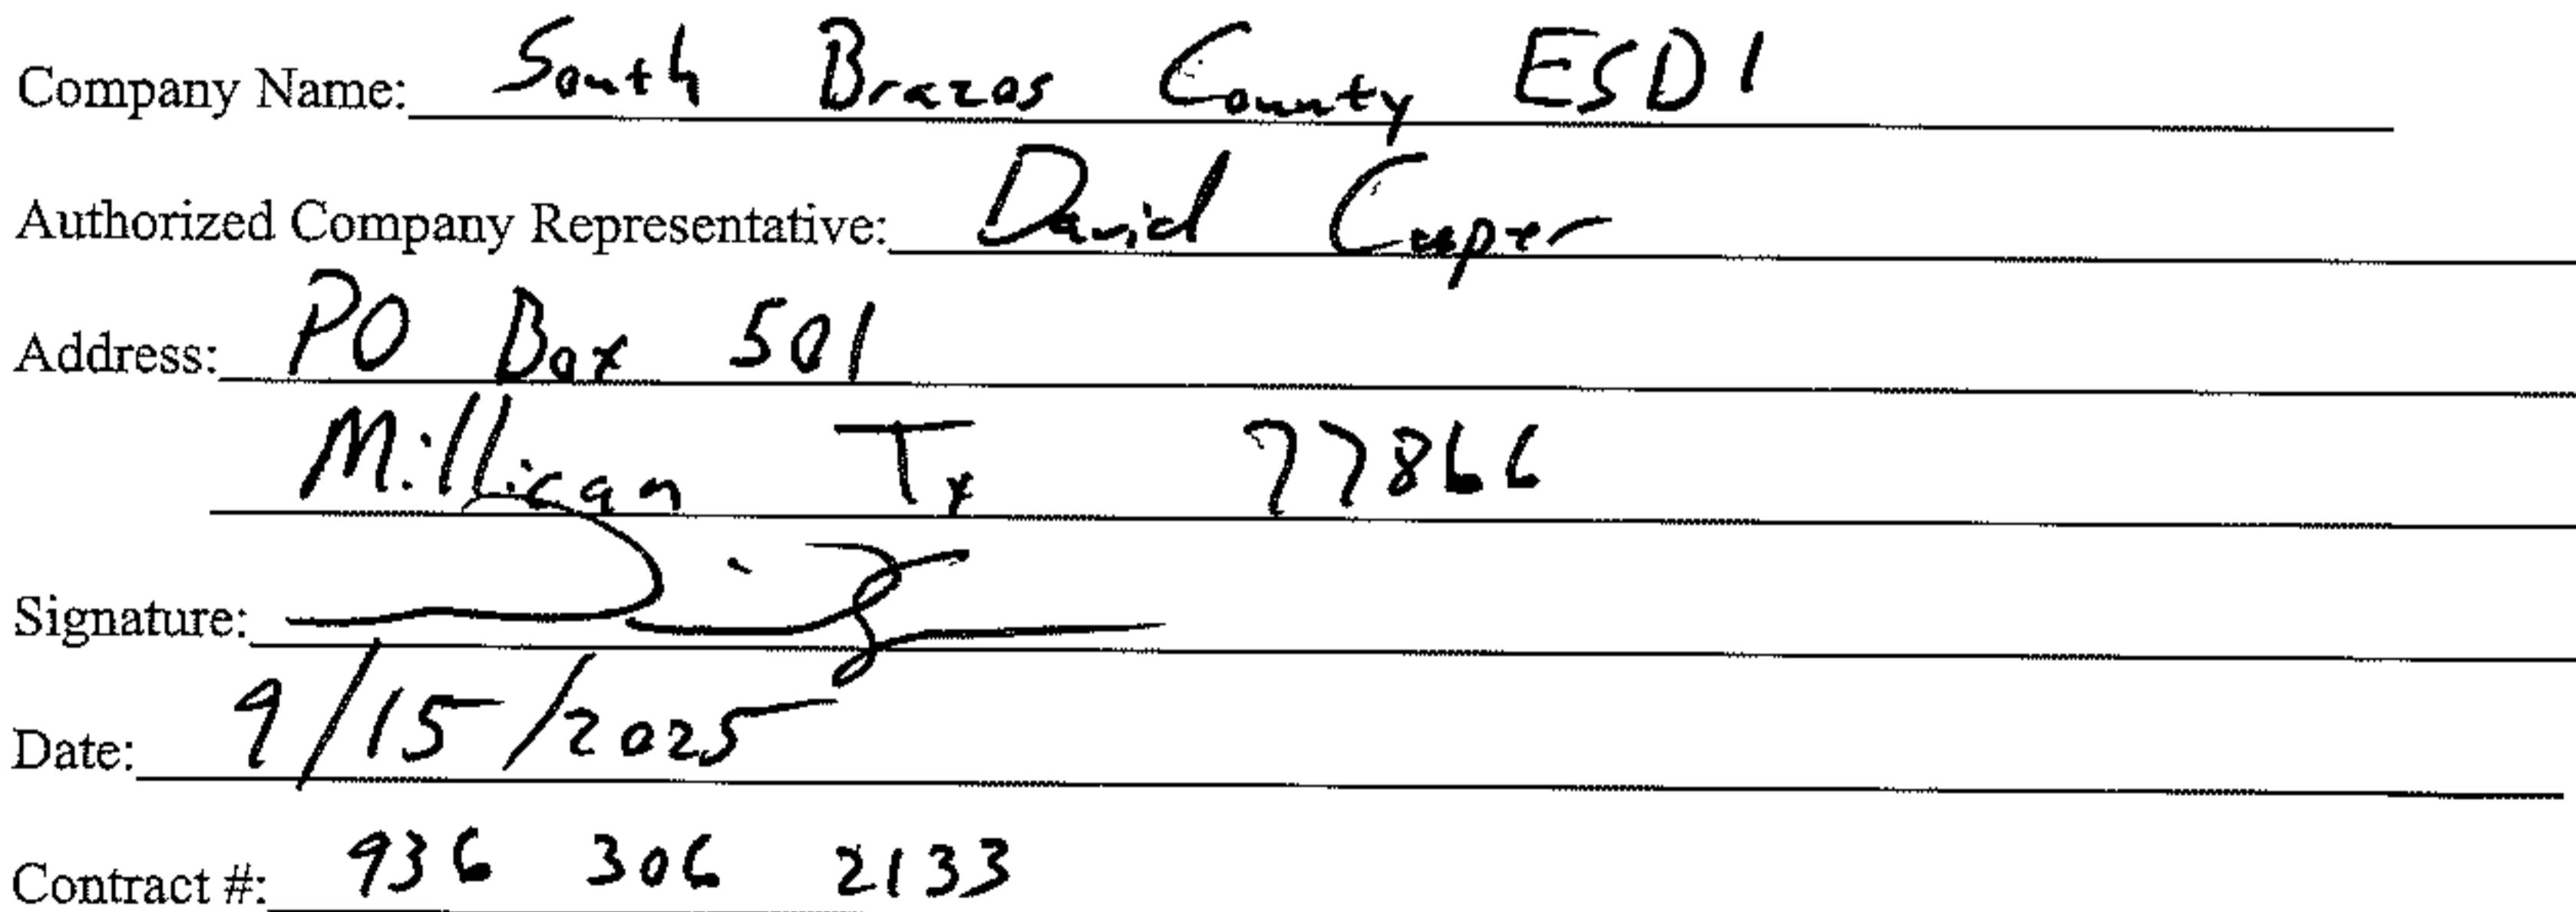 Company Name: South Brazos County ESD1
Authorized Company Representative: David
Address: PO Box 501
Millican Tx 77866
Signature:
Date: 9/15/2025
Contract #: 936 306 2133